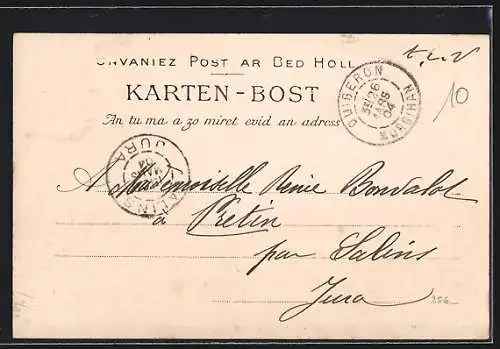 UNVANIEZ POST AR BED HOLL
KARTEN-BOST
An tu ma a zo miret evid an adress
QUIBERON
26
04
MORBIHAN
10
JURA
04
SALINS
A Mademoiselle Renée Bondalot
à Pretin
par Salins
Jura
256